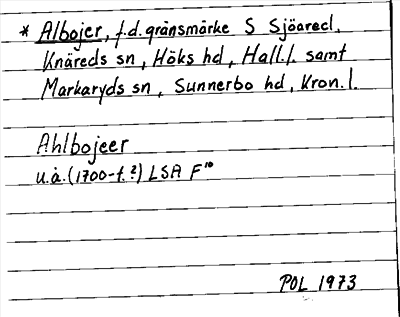 * Albojer, f.d. gränsmärke S Sjöared,
Knäreds sn, Höks hd, Hall.l. samt
Markaryds sn, Sunnerbo hd, Kron.l.
Ahlbojeer
u.å. (1700-t.?) LSA F¹⁰
POL 1973